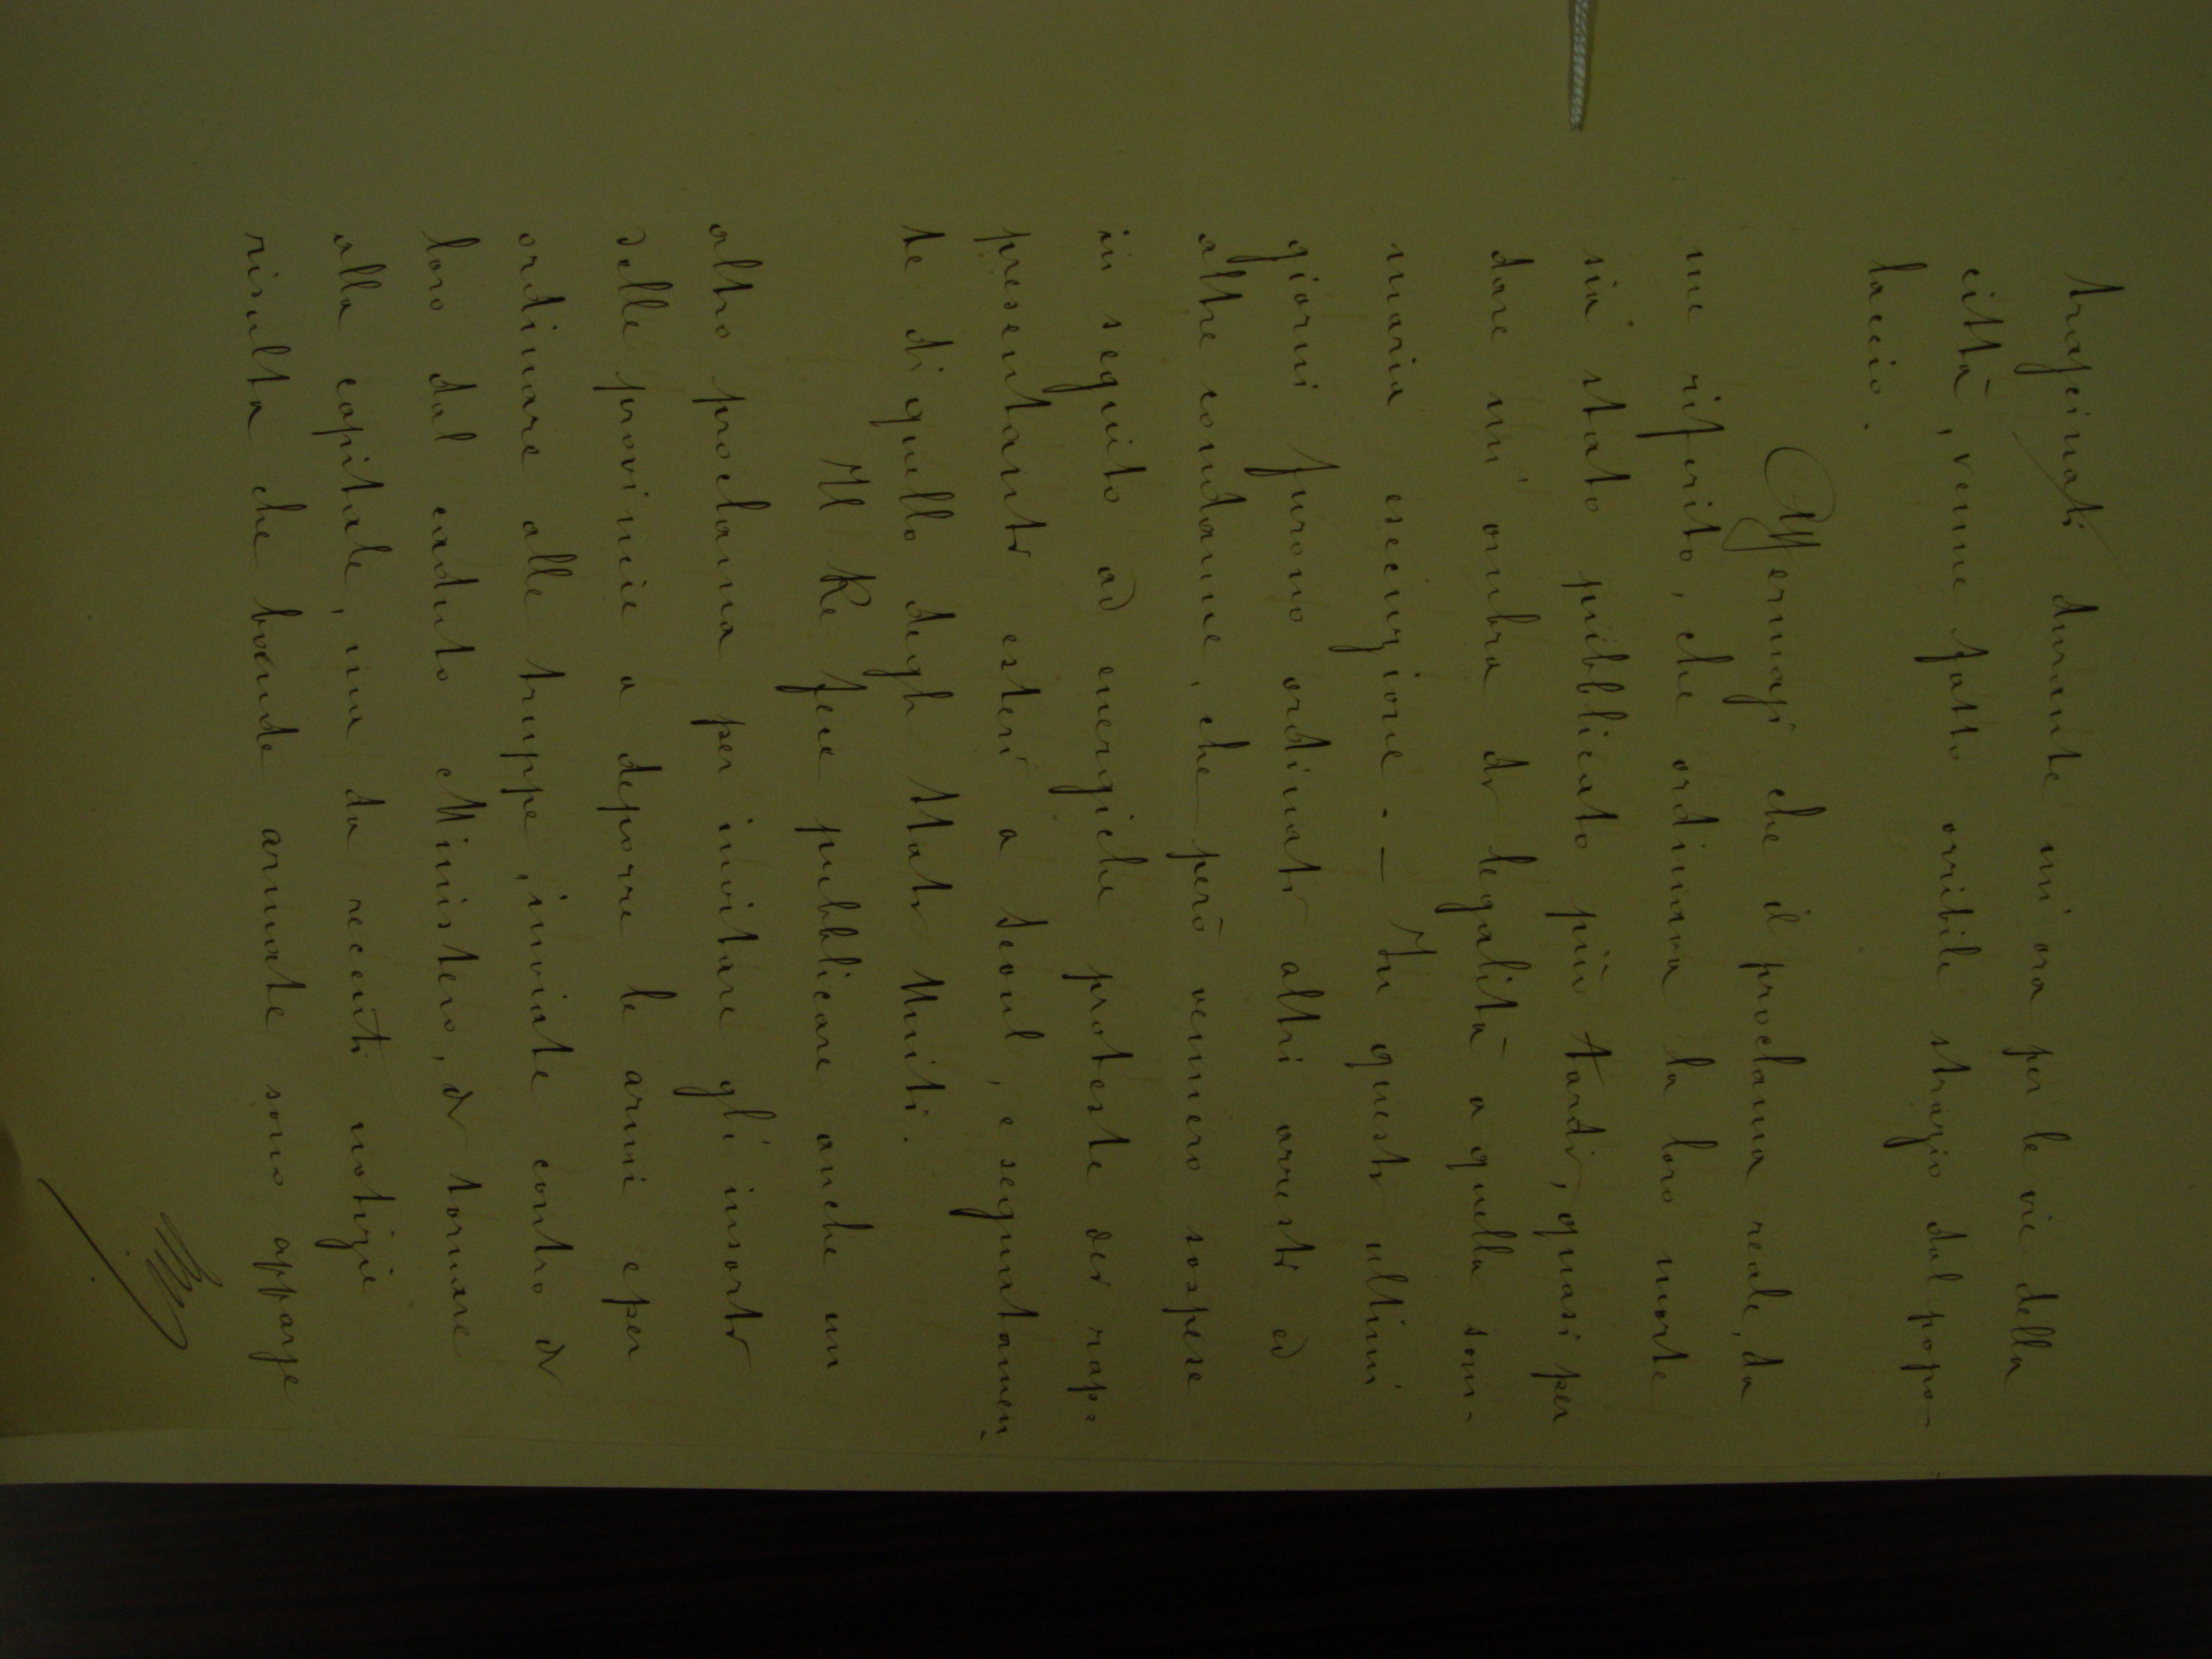 trascinati durante un'ora per le vie della
città, venne fatto orribile strazio dal popo-
laccio.
Affermasi che il proclama reale, da
me riferito, che ordinava la loro morte
sia stato pubblicato più tardi, quasi per
dare un' ombra di legalità a quella som-
maria esecuzione. — In questi ultimi
giorni furono ordinati altri arresti ed
altre condanne, che però vennero sospese
in seguito ad energiche proteste dei rap-
presentanti esteri a Seoul, e segnatamen-
te di quello degli Stati Uniti.
Il Re fece pubblicare anche un
altro proclama per invitare gl' insorti
delle provincie a deporre le armi e per
ordinare alle truppe, inviate contro di
loro dal caduto Ministero, di tornare
alla capitale, ma da recenti notizie
risulta che bande armate sono apparse